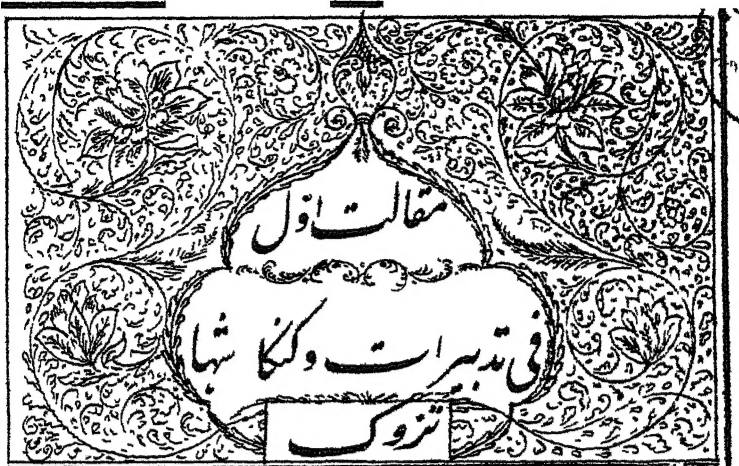 مقالت اوّل
فی تدبیرات و کنکاشتها
تزوک